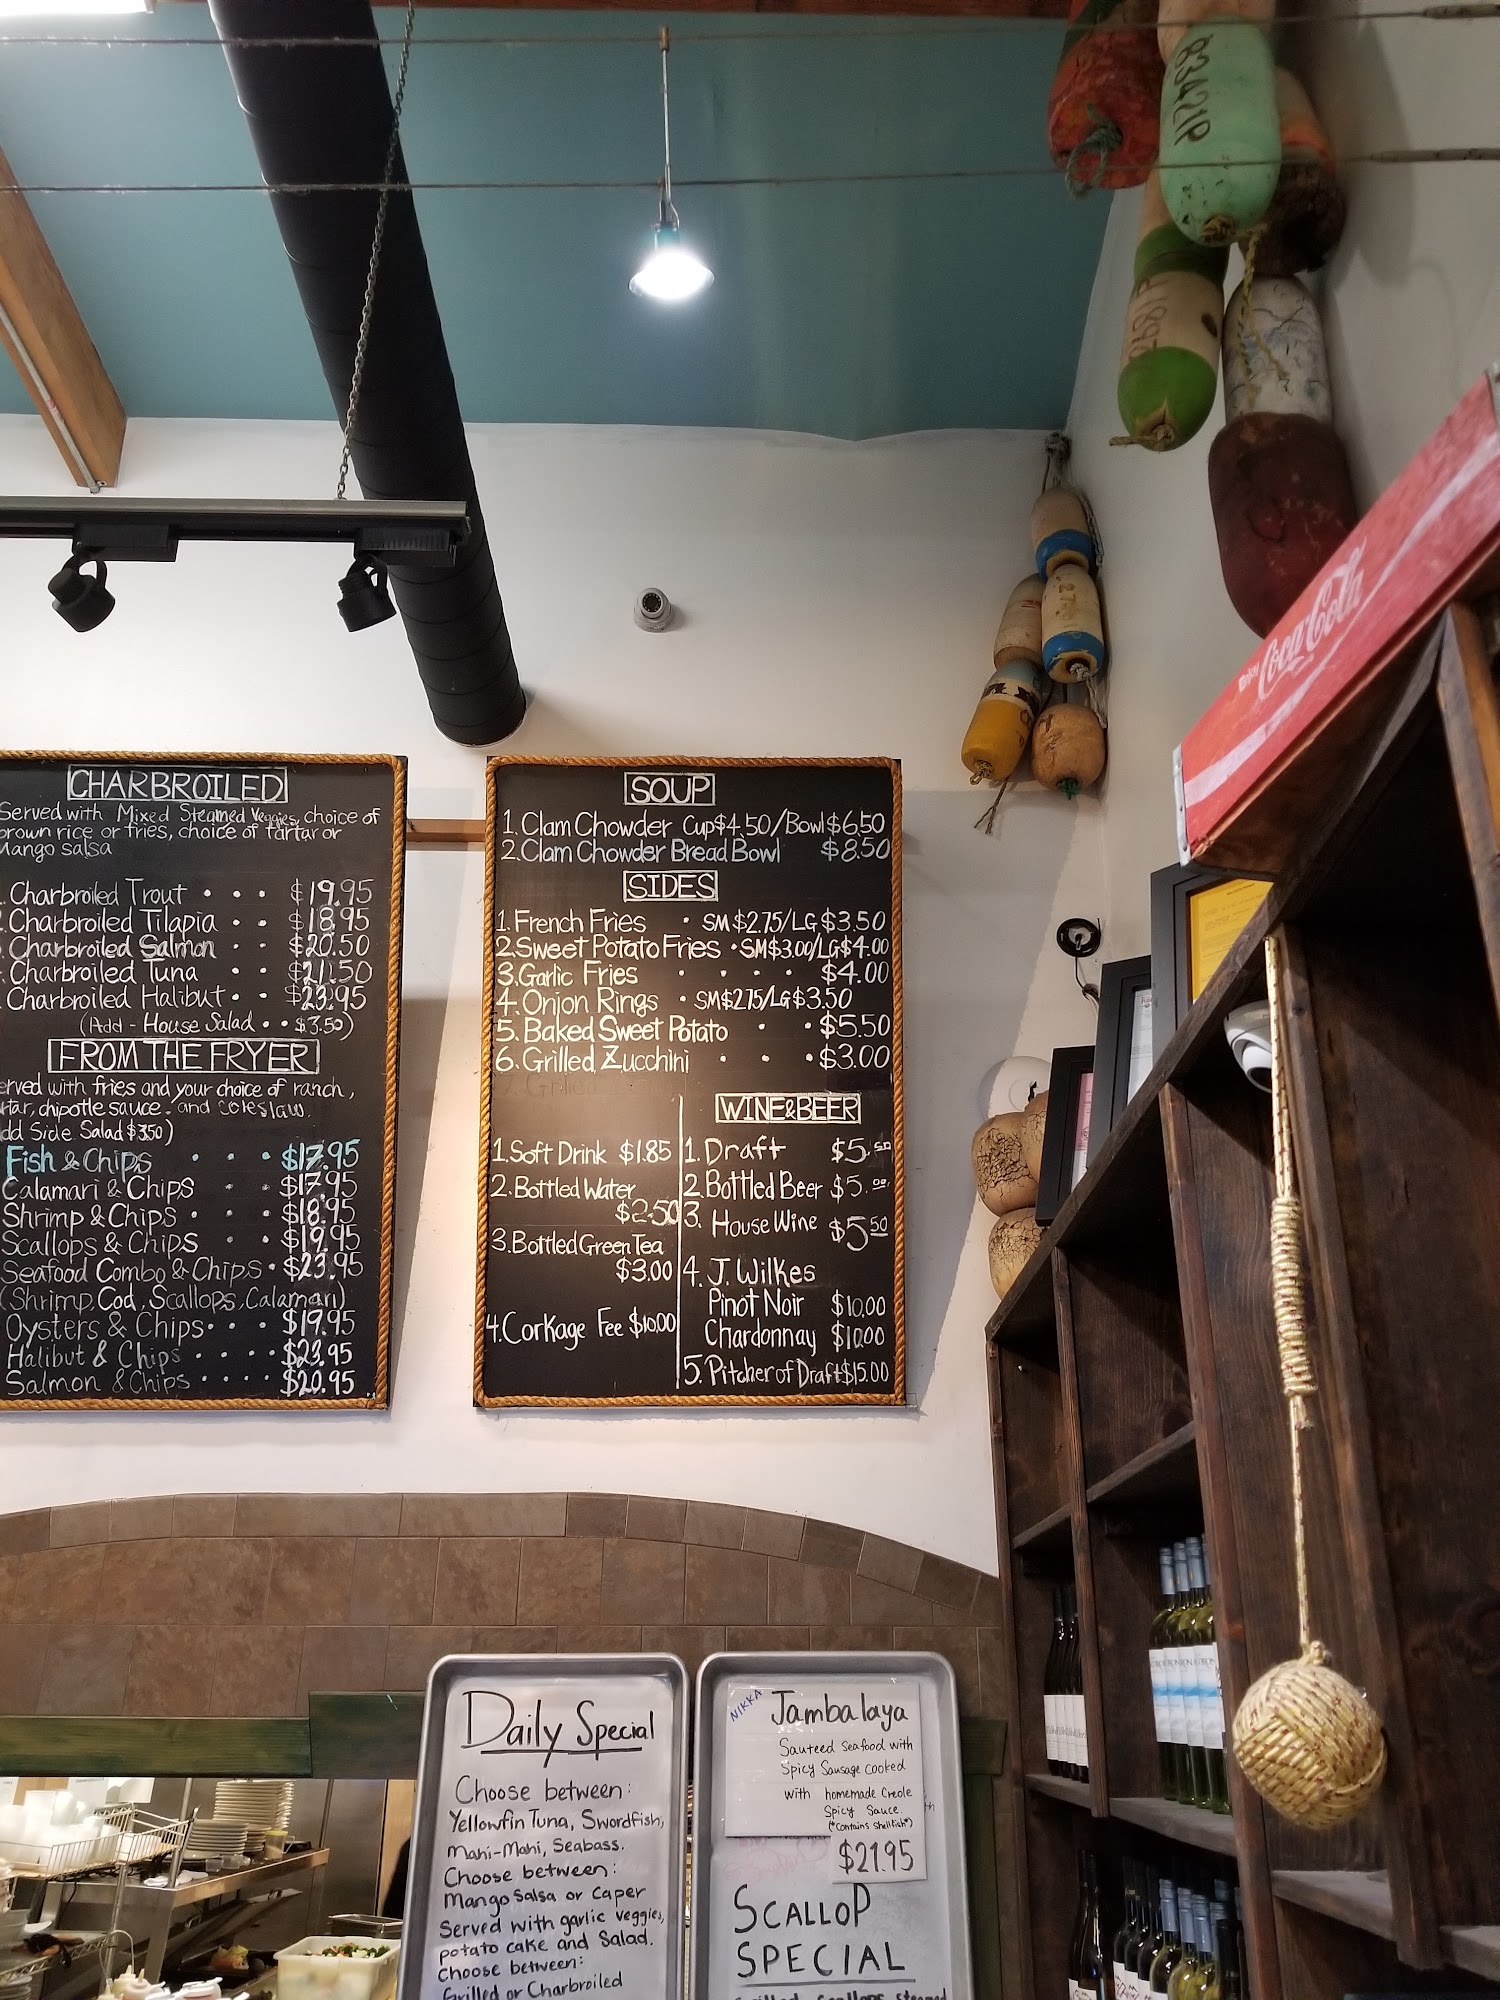 83421P
Enjoy Coca-Cola
CHARBROILED
Served with Mixed Steamed Veggies, choice of
brown rice or fries, choice of tartar or
Mango salsa
Charbroiled Trout • • • $19.95
Charbroiled Tilapia • • $18.95
Charbroiled Salmon • • $20.50
Charbroiled Tuna • • $21.50
Charbroiled Halibut • • $23.95
(Add - House Salad • • $3.50)
FROM THE FRYER
erved with fries and your choice of ranch,
rtar, chipotle sauce. and coleslaw.
dd Side Salad $3.50)
Fish & Chips • • • $17.95
Calamari & Chips • • $17.95
Shrimp & Chips • • $18.95
Scallops & Chips • • $19.95
Seafood Combo & Chips • $23.95
(Shrimp, Cod, Scallops, Calamari)
Oysters & Chips • • • $19.95
Halibut & Chips • • • • $23.95
Salmon & Chips • • • • $20.95
SOUP
1. Clam Chowder Cup $4.50/Bowl $6.50
2. Clam Chowder Bread Bowl $8.50
SIDES
1. French Fries • SM $2.75/LG $3.50
2. Sweet Potato Fries • SM $3.00/LG $4.00
3. Garlic Fries • • • • $4.00
4. Onion Rings • SM $2.75/LG $3.50
5. Baked Sweet Potato • • $5.50
6. Grilled Zucchini • • • $3.00
1. Soft Drink $1.85
2. Bottled Water
$2.50
3. Bottled Green Tea
$3.00
4. Corkage Fee $10.00
WINE & BEER
1. Draft $5.50
2. Bottled Beer $5.00
3. House Wine $5.50
4. J. Wilkes
Pinot Noir $10.00
Chardonnay $10.00
5. Pitcher of Draft $15.00
Daily Special
Choose between:
Yellowfin Tuna, Swordfish,
Mahi-Mahi, Seabass.
Choose between:
Mango Salsa or Caper
Served with garlic veggies,
potato cake and Salad.
Choose between:
Grilled or Charbroiled
NIKKA
Jambalaya
Sauteed Seafood with
Spicy Sausage cooked
with homemade Creole
Spicy Sauce.
(*Contains shellfish*)
$21.95
SCALLOP
SPECIAL